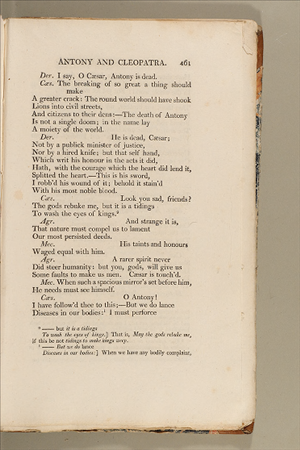 ANTONY AND CLEOPATRA. 461
Der. I say, O Cæsar, Antony is dead.
Cæs. The breaking of so great a thing should
make
A greater crack: The round world should have shook
Lions into civil streets,
And citizens to their dens:—The death of Antony
Is not a single doom; in the name lay
A moiety of the world.
Der. He is dead, Cæsar;
Not by a publick minister of justice,
Nor by a hired knife; but that self hand,
Which writ his honour in the acts it did,
Hath, with the courage which the heart did lend it,
Splitted the heart.—This is his sword,
I robb'd his wound of it; behold it stain'd
With his most noble blood.
Cæs. Look you sad, friends?
The gods rebuke me, but it is a tidings
To wash the eyes of kings.
Agr. And strange it is,
That nature must compel us to lament
Our most persisted deeds.
Mec. His taints and honours
Waged equal with him.
Agr. A rarer spirit never
Did steer humanity: but you, gods, will give us
Some faults to make us men. Cæsar is touch'd.
Mec. When such a spacious mirror's set before him,
He needs must see himself.
Cæs. O Antony!
I have follow'd thee to this;—But we do lance
Diseases in our bodies: I must perforce
— but it is a tidings
To wash the eyes of kings.] That is, May the gods rebuke me,
if this be not tidings to make kings weep.
— But we do lance
Diseases in our bodies:] When we have any bodily complaint,